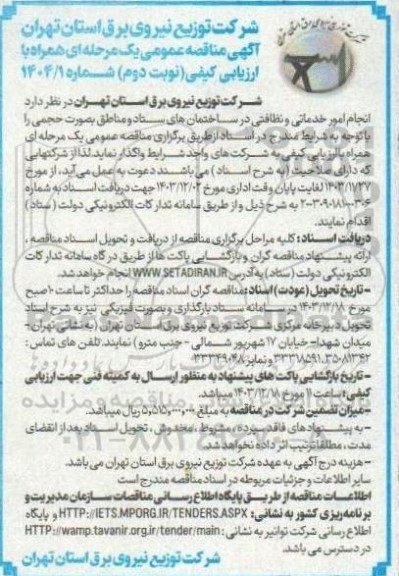 شرکت توزیع نیروی برق استان تهران
آگهی مناقصه عمومی یک مرحله ای همراه با
ارزیابی کیفی (نوبت دوم) شماره ۱۴۰۴/۱
شرکت توزیع نیروی برق استان تهران در نظر دارد
انجام امور خدماتی و نظافتی در ساختمان های ستاد و مناطق بصورت حجمی را
با توجه به شرایط مندرج در اسناد از طریق برگزاری مناقصه عمومی یک مرحله ای
همراه با ارزیابی کیفی به شرکت های واجد شرایط واگذار نماید. لذا از شرکتهایی
که دارای صلاحیت (به شرح اسناد) می باشند دعوت به عمل می آید، از مورخ
۱۴۰۳/۱۱/۲۷ لغایت پایان وقت اداری مورخ ۱۴۰۳/۱۲/۰۲ جهت دریافت اسناد به شماره
۲۰۰۳۰۹۰۱۸۱۰۰۰۳۰۶ به شرح ذیل و از طریق سامانه تدارکات الکترونیکی دولت (ستاد)
اقدام نمایند.
دریافت اسناد: کلیه مراحل برگزاری مناقصه از دریافت و تحویل اسناد مناقصه،
ارائه پیشنهاد مناقصه گران و بازگشایی پاکت ها از طریق درگاه سامانه تدارکات
الکترونیکی دولت (ستاد) به آدرس WWW.SETADIRAN.IR انجام خواهد شد.
- تاریخ تحویل (عودت) اسناد: مناقصه گران اسناد مناقصه را حداکثر تا ساعت ۱۰ صبح
مورخ ۱۴۰۳/۱۲/۱۸ در سامانه ستاد بارگذاری و بصورت فیزیکی نیز به شرح اسناد
تحویل دبیرخانه مرکزی شرکت توزیع نیروی برق استان تهران (به نشانی تهران -
میدان شهدا- خیابان ۱۷ شهریور شمالی - جنب مترو) نمایند. تلفن های تماس:
۳۵۰۸۱۳۴۲-۳۳۳۱۸۵۹۱ و نمابر ۳۳۳۴۹۰۴۸
- تاریخ بازگشایی پاکت های پیشنهاد به منظور ارسال به کمیته فنی جهت ارزیابی
کیفی: ساعت ۱۱ مورخ ۱۴۰۳/۱۲/۱۸ میباشد.
- میزان تضمین شرکت در مناقصه به مبلغ ۵،۵۱۵،۰۰۰،۰۰۰ ریال میباشد.
- به پیشنهادهای فاقد سپرده، مشروط، مخدوش، تحویل اسناد بعد از انقضای
مدت، مطلقا ترتیب اثر داده نخواهد شد.
- هزینه درج آگهی به عهده شرکت توزیع نیروی برق استان تهران می باشد.
سایر اطلاعات و جزئیات مربوطه در اسناد مناقصه مندرج است
اطلاعات مناقصه از طریق پایگاه اطلاع رسانی مناقصات سازمان مدیریت و
برنامه ریزی کشور به نشانی: HTTP://IETS.MPORG.IR/TENDERS.ASPX و پایگاه
اطلاع رسانی شرکت توانیر به نشانی: HTTP://wamp.tavanir.org.ir/tender/main
در دسترس می باشد.
شرکت توزیع نیروی برق استان تهران